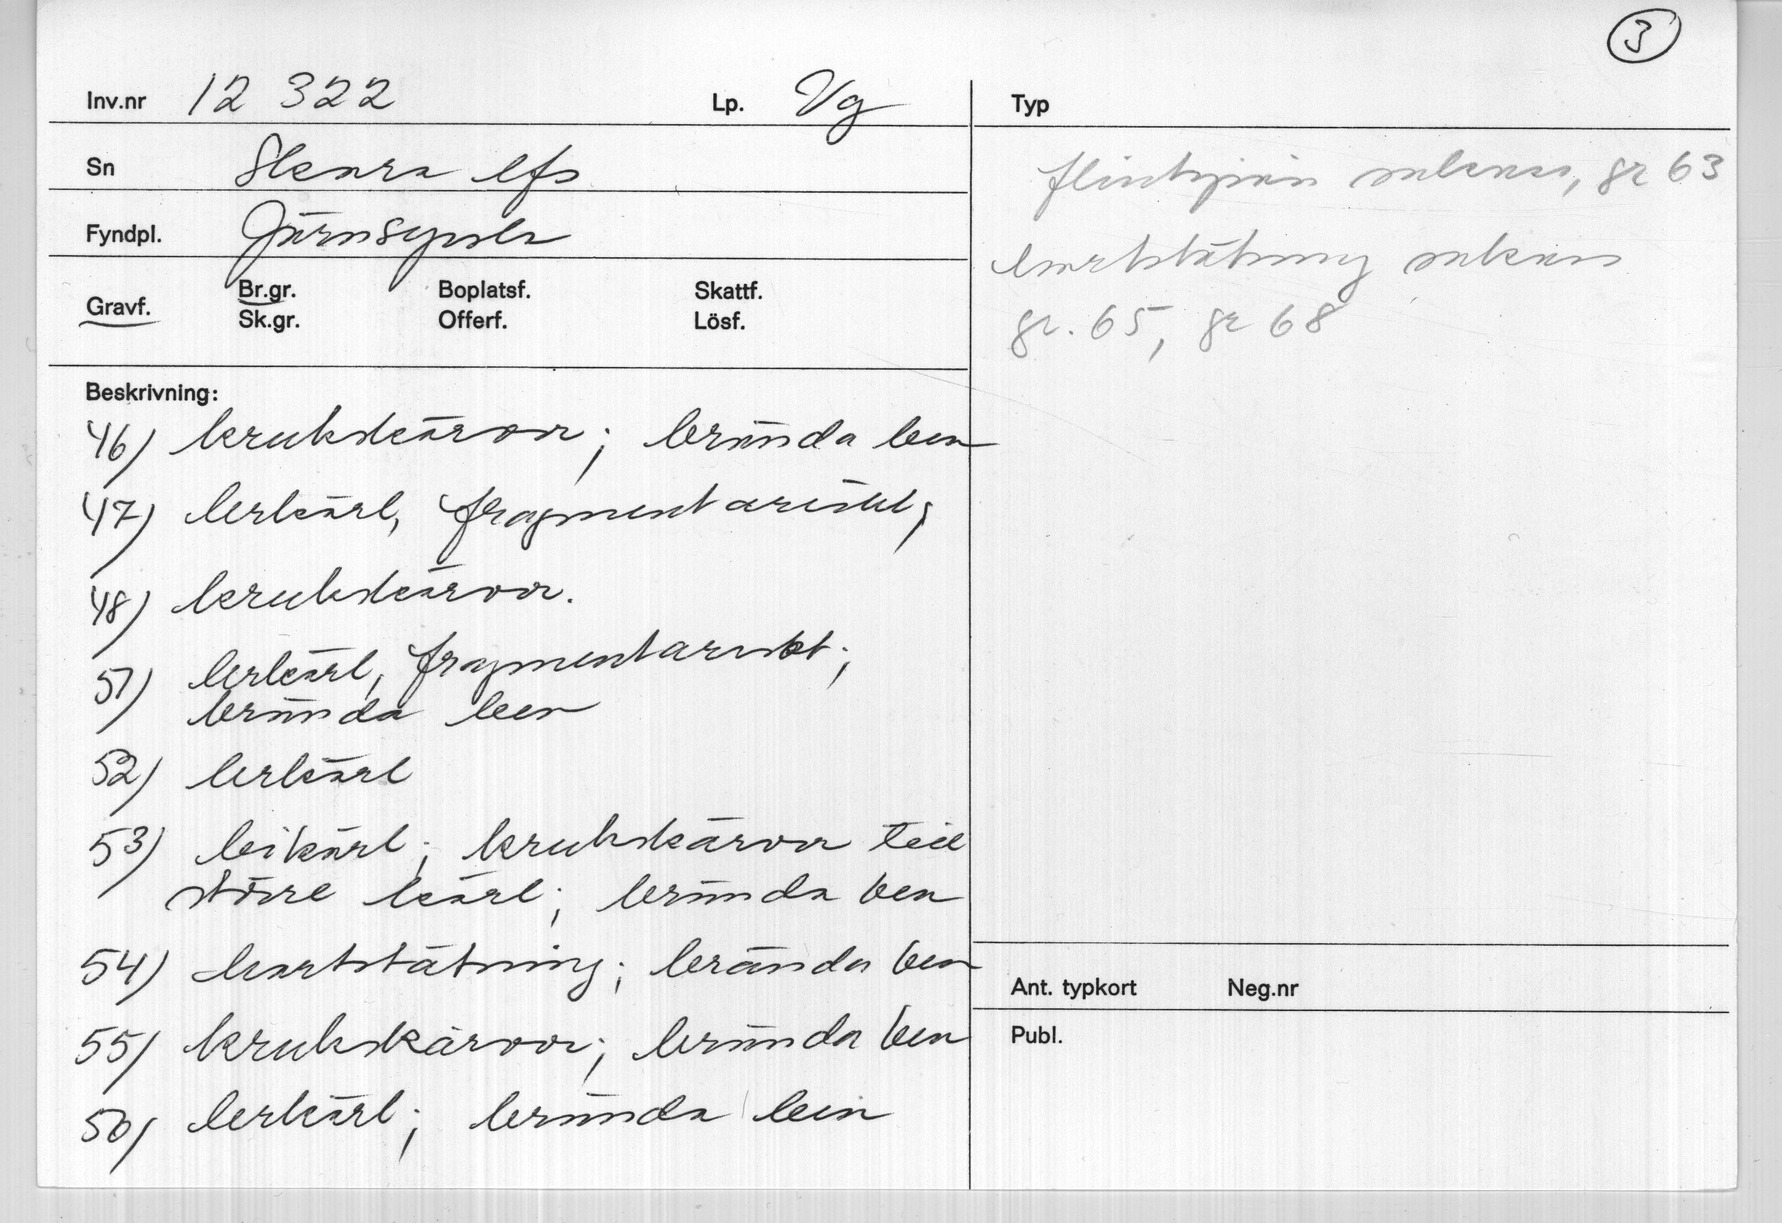 3
Inv.nr 12 322 Lp. Vg Typ
Sn Skara lfs
Fyndpl. Järnsysla
Gravf. Br.gr. Boplatsf. Skattf.
Sk.gr. Offerf. Lösf.
Beskrivning:
46) krukskärvor; brända ben
47) lerkärl, fragmentariskt;
48) krukskärvor.
51) lerkärl, fragmentariskt;
brända ben
52) lerkärl
53) bikärl; krukskärvor till
större kärl; brända ben
54) hartstätning; brända ben
55) krukskärvor; brända ben
56) lerkärl; brända ben
saknas, gr 63
hartstätning saknas
gr. 65, gr 68
Ant. typkort Neg.nr
Publ.